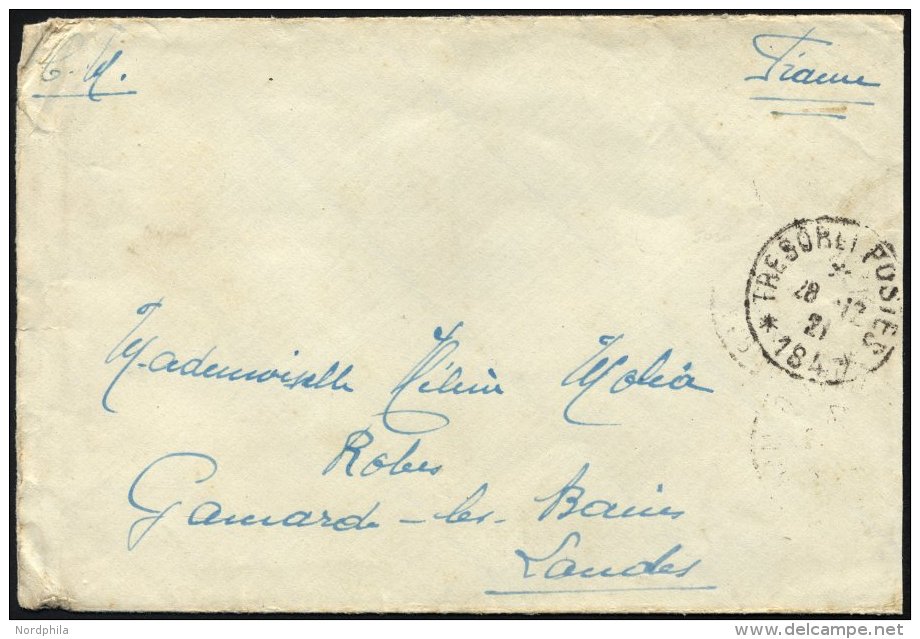 F. M.
France
* TRESOR ET POSTES *
28 -12
21
184
Mademoiselle Hélène Molia
Robes
Gamarde-les-Bains
Landes
Nordphila
delcampe.net